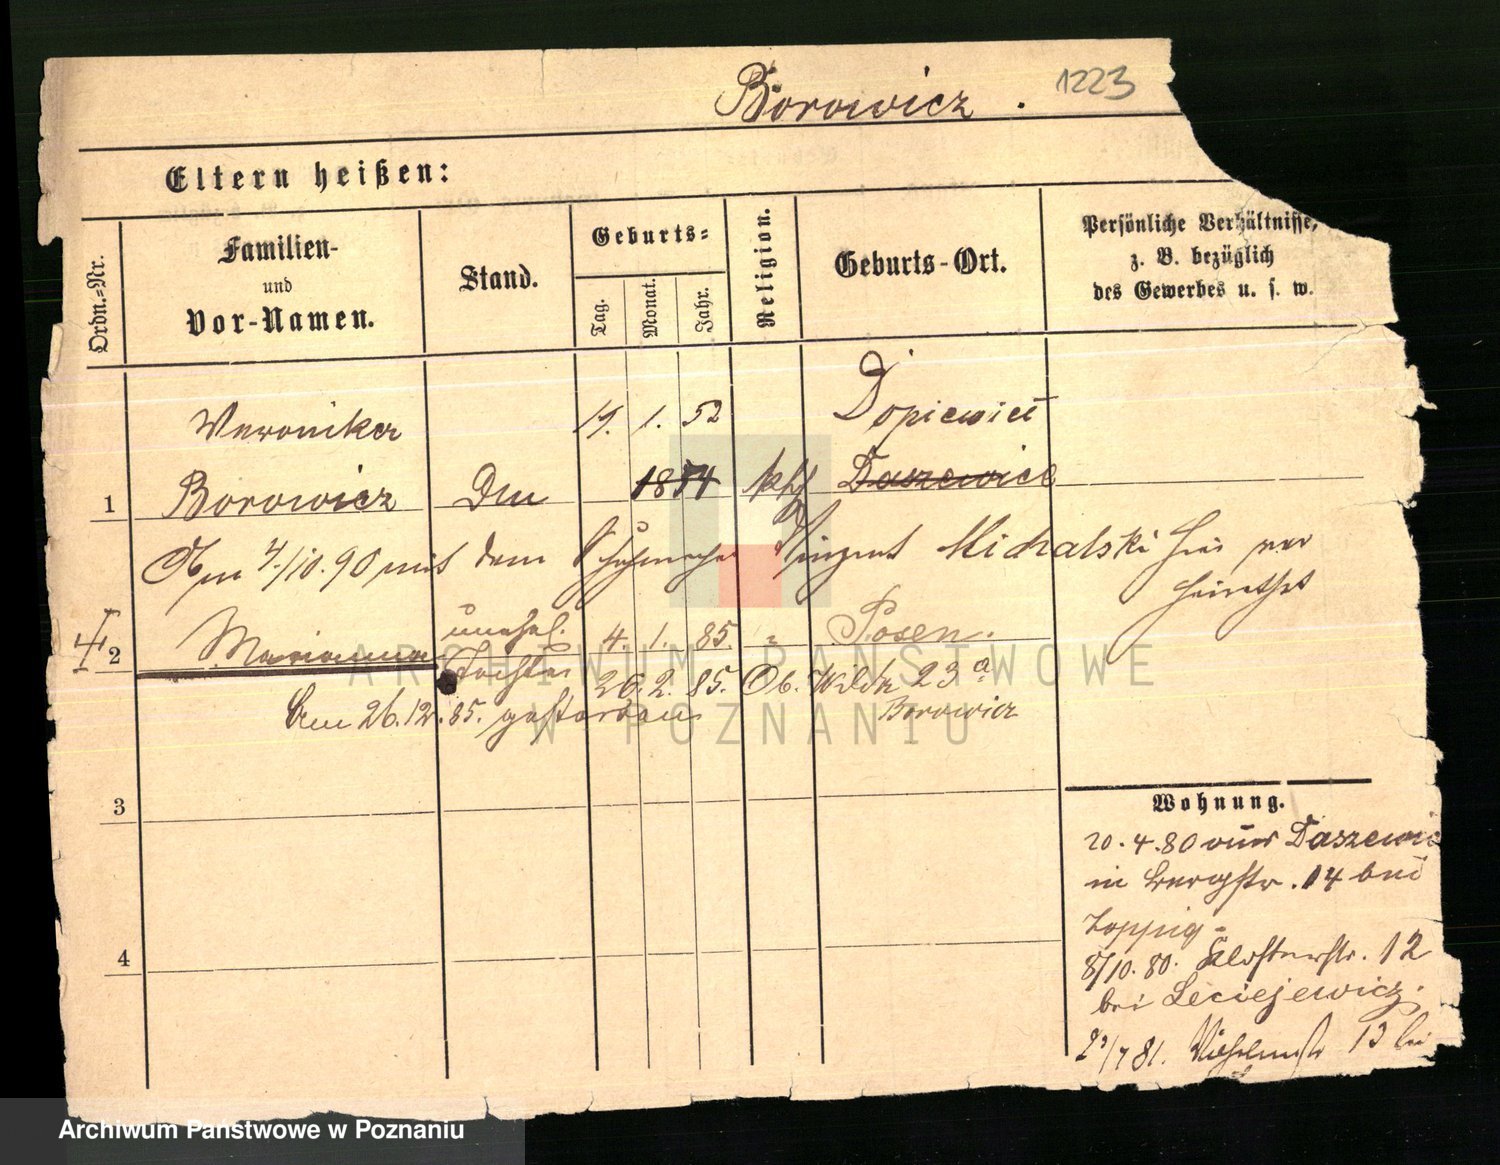 Borowicz. 1223
Eltern heißen:
Ordn.-Nr.
Familien-
und
Vor-Namen.
Stand.
Geburts-
Tag.
Monat.
Jahr.
Religion.
Geburts-Ort.
Persönliche Verhältnisse,
z. B. bezüglich
des Gewerbes u. s. w.
Veronika 19. 1. 52 Dopiewiec
1 Borowicz 1854 kth Daszewice
Am 4/10.90 mit dem Schuhmacher Vinzent Michalski hier ver
heirathet
2 Marianna unehel. 4. 1. 85. " Posen.
Tochter 26. 2. 85. Ob. Wilda 23a
Am 26.12.85. gestorben Borowicz
3
4
Wohnung.
20.4.80 von Daszewic
in Bergstr. 14 bei
Zoppig
8/10.80. Klosterstr. 12
bei Leciejewicz.
/7 81. Wilhelmstr 13 bei
ARCHIWUM PAŃSTWOWE
W POZNANIU
Archiwum Państwowe w Poznaniu